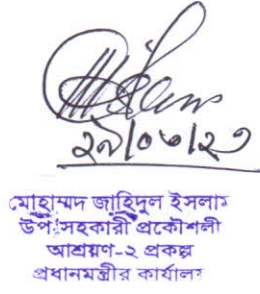 ২৯/০৩/২৩
মোহাম্মদ জাহিদুল ইসলাম
উপ-সহকারী প্রকৌশলী
আশ্রয়ণ-২ প্রকল্প
প্রধানমন্ত্রীর কার্যালয়